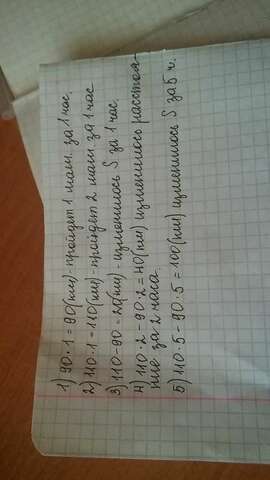 1) 90·1=90(км)-пройдет 1 маш. за 1 час.
2) 110·1=110(км)-пройдет 2 маш. за 1 час
3) 110-90=20(км)-изменилось S за 1 час.
4) 110·2-90·2=40(км) изменилось расстоя-
ние за 2 часа.
5) 110·5-90·5=100(км) изменилось S за 5 ч.